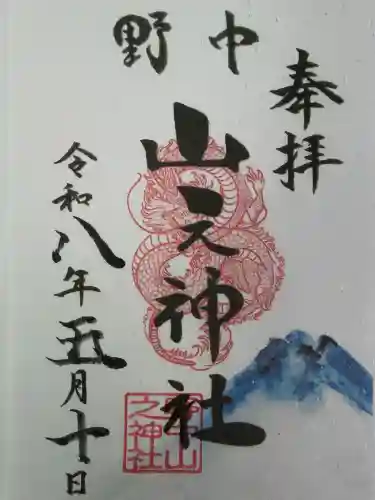 奉拝
野中
山之神社
令和八年五月十日
野中山
之神社